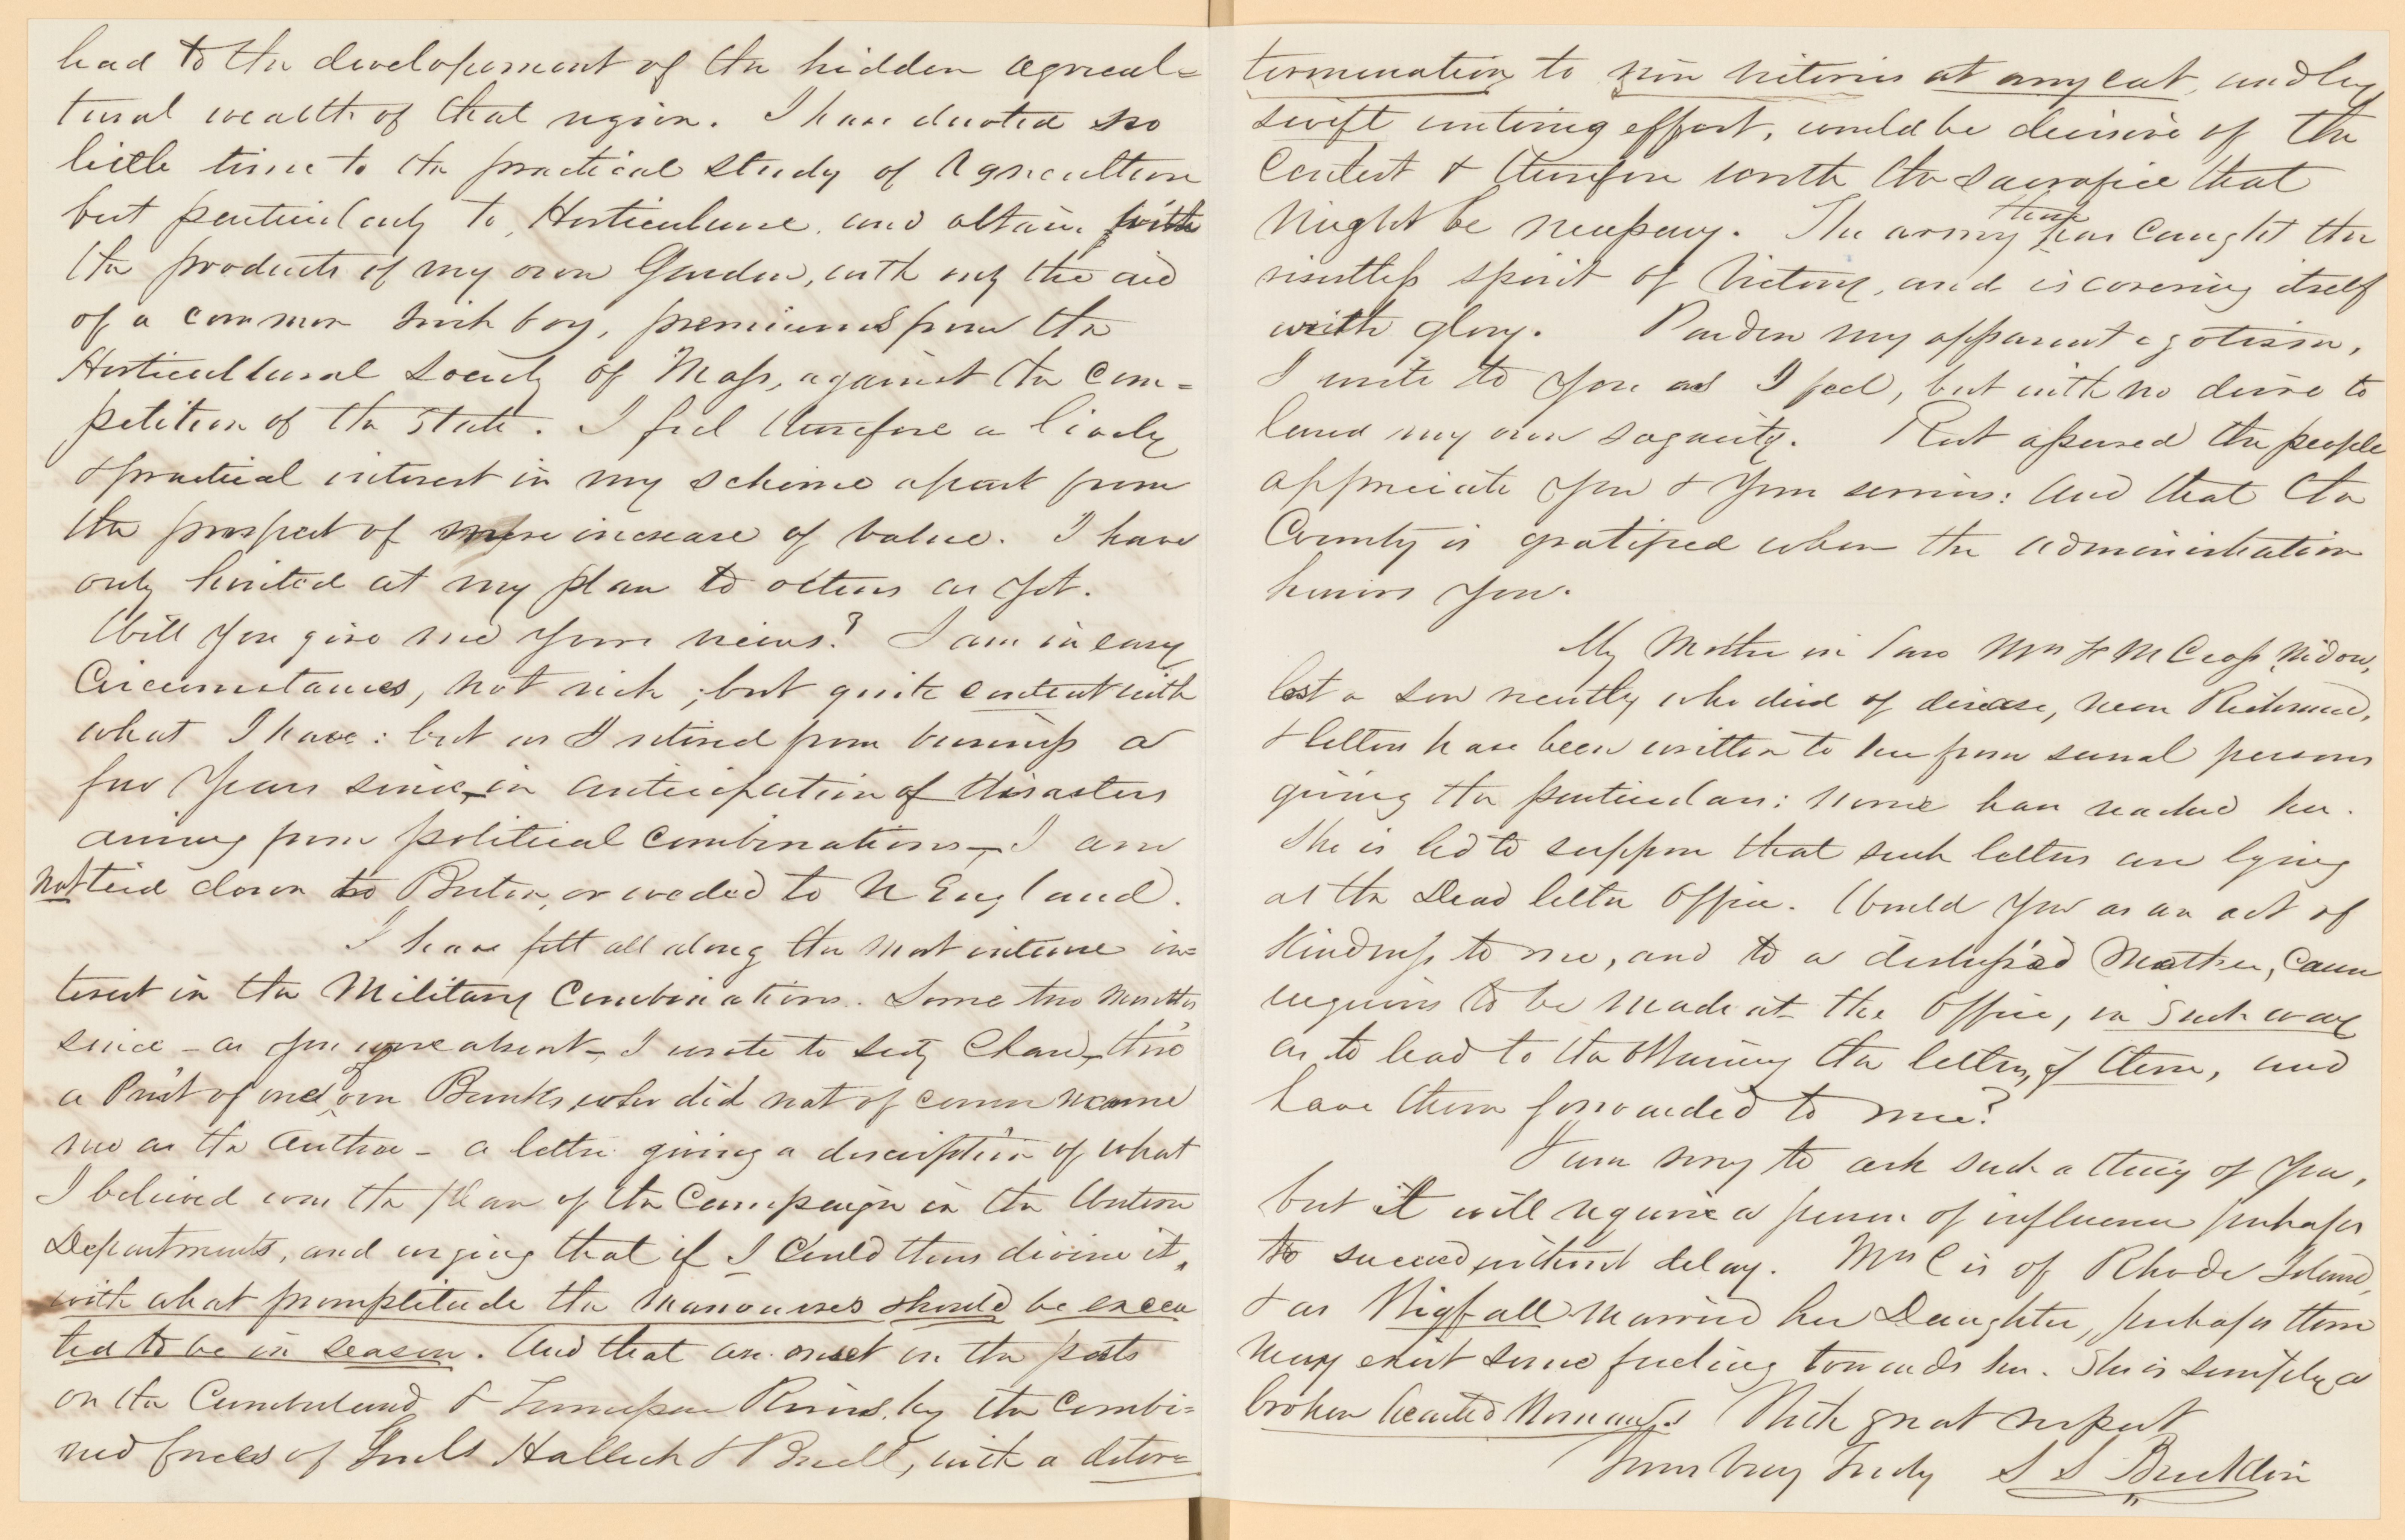 lead to the developement of the hidden agricul=
tural wealth of that region. I have devoted so
little time to the practical study of Agriculture
but particularly to Horticulture, and obtain with
the products of my own Garden, with only the aid
of a common Irish boy, premiums from the
Horticultural Society of Mass, against the com=
petition of the State. I feel therefore a lively
& practical interest in my scheme apart from
the prospect of mere increase of value. I have
only hinted at my plan to others as yet.
Will you give me your views? I am in easy
Circumstances, not rich; but quite content with
what I have: but as I retired from business a
few years since, in anticipation of disasters
arising from political combinations, I am
not tied down to Boston, or wedded to N England.
I have felt all along the most intense in=
terest in the Military Combinations. Some two months
since – as you were absent – I wrote to Secty Chase, thro'
a Prest of one of our Banks, who did not of course name
me as the author – a letter giving a description of what
I believed was the plan of the Campaign in the Western
Departments, and urging that if I could thus divine it,
with what promptitude the manouvres should be execu
ted to be in season. And that an onset on the posts
on the Cumberland & Tennessee Rivers, by the combi=
ned forces of Genls Halleck & Buell, with a deter=
termination to win victories at any cost, and by
swift untiring effort, would be decisive of the
Contest & therefore worth the sacrifice that
might be necessary. The army there has caught the
resistless spirit of Victory, and is covering itself
with glory. Pardon my apparent egotism,
I write to you as I feel, but with no desire to
laud my own sagacity. Rest assured the people
appreciate you & your services: And that the
Country is gratified when the administration
honors you.
My Mother in law Mrs H M Cross, Widow,
lost a son recently who died of disease, near Richmond,
& letters have been written to her from several persons
giving the particulars: none have reached her.
She is led to suppose that such letters are lying
at the Dead letter Office. Would you as an act of
Kindness to me, and to a distress'd Mother, cause
inquiries to be made at the Office, in such way
as to lead to the obtaining the letters, if there, and
have them forwarded to me?
I am sorry to ask such a thing of you,
but it will require a person of influence perhaps
to succeed without delay. Mrs C is of Rhode Island,
& as Wigfall married her Daughter, perhaps there
may exist some feeling towards her. She is simply a
broken hearted Woman. With great respect
Yours Very Truly S S Bucklin